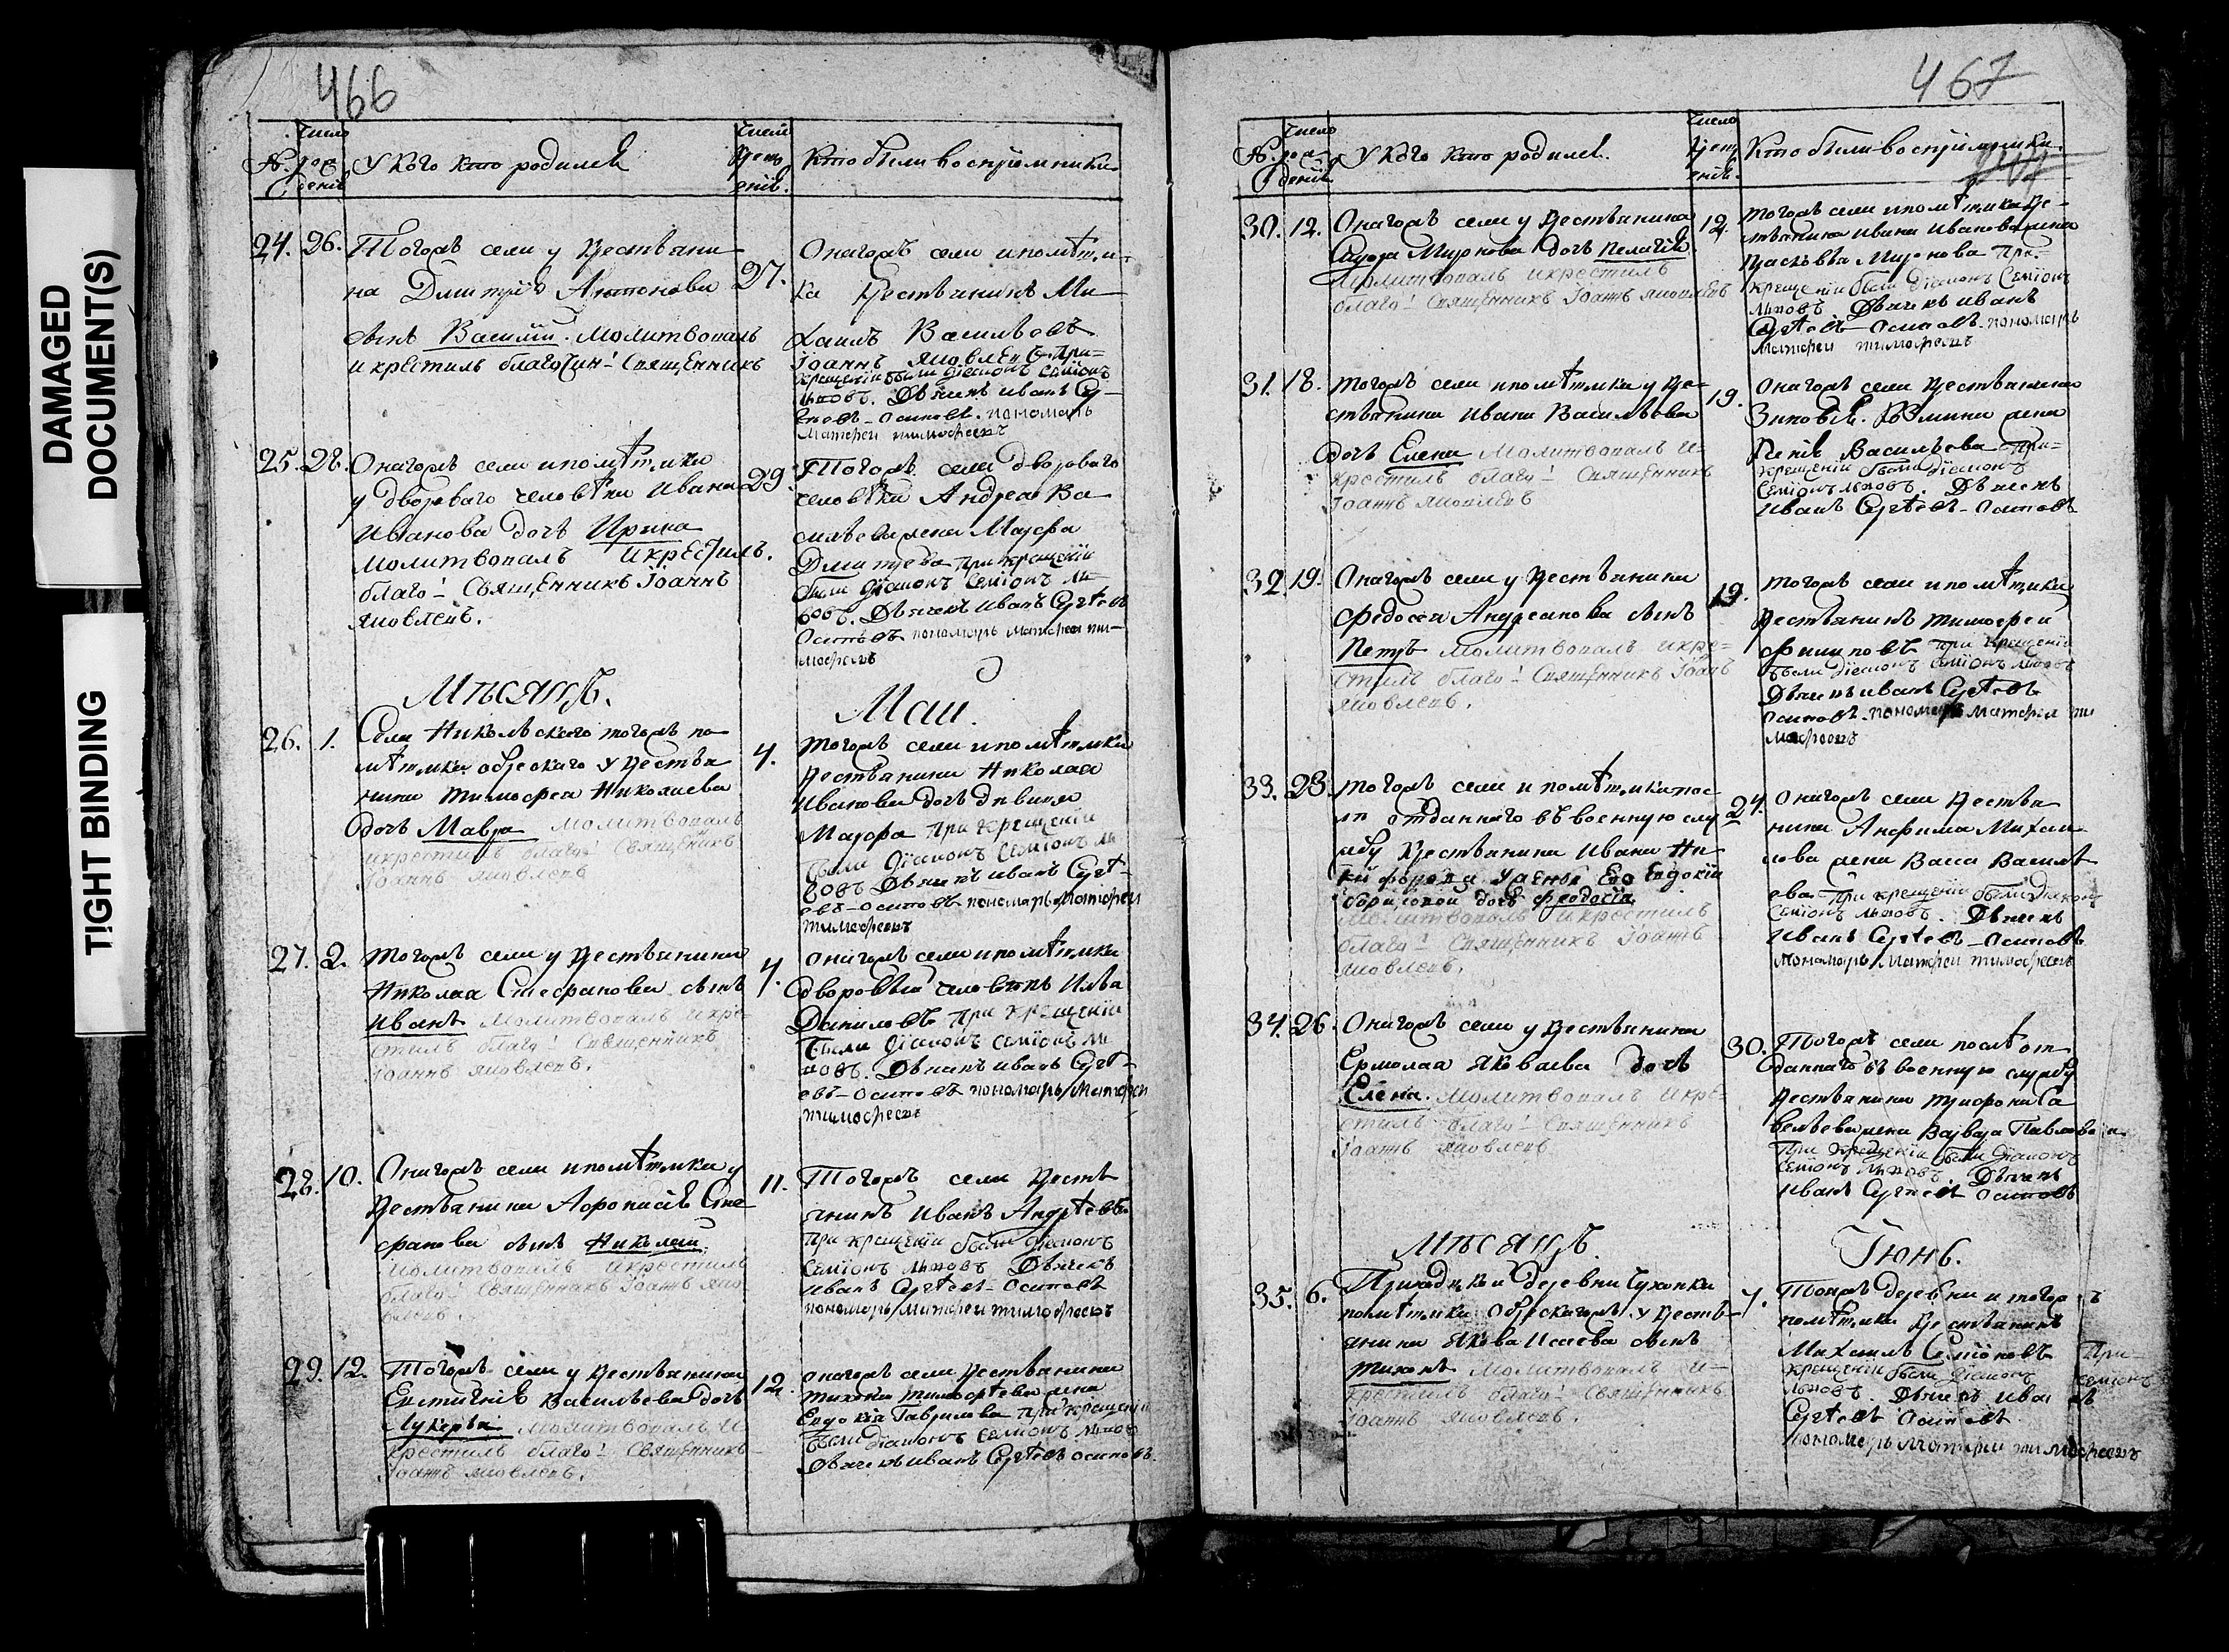 DAMAGED
DOCUMENT(S)
TIGHT BINDING
466
№.
Число рождения
У кого кто родился
Число крещения
Кто были воспріемники
24. 26.
Тогожъ села у крестьяни
на Дмитрія Антонова
сынъ Василій. Молитвовалъ
и крестилъ благочин: Священникъ
27.
Онагожъ села и помѣщи
ка крестьянинъ Ми
хаилъ Васильевъ
Іоаннъ Яковлевъ. При
крещеніи были діаконъ Семіонъ
Львовъ. Дьячекъ Иванъ Сер
геевъ Осиповъ. пономарь
Матфеи тимофеевъ
25. 28.
Онагожъ села и помѣщика
у двороваго человѣка Ивана
Иванова дочь Ирина
молитвовалъ и крестилъ.
благо: Священникъ Іоаннъ
Яковлевъ.
29.
Тогожъ села двороваго
человѣка Андрея Ва
сильева жена Марфа
Дмитрева при крещеніи
были діаконъ Семіонъ Ль
вовъ. Дьячекъ Иванъ Сергѣевъ
Осиповъ пономарь Матфеи ти
мофеевъ
Мѣсяцъ.
Маи.
26. 1.
Села Никольскаго тогожъ по
мѣщика обрескаго у крестья
нина Тимофея Николаева
дочь Мавра молитвовалъ
и крестилъ благо: Священникъ
Іоаннъ Яковлевъ
4.
тогожъ села и помѣщика
крестьянина Николая
Иванова дочь дѣвица
Марфа при крещеніи
были діаконъ Семіонъ Ль
вовъ Дьячекъ Иванъ Сергѣ
евъ Осиповъ пономарь Матфеи
тимофеевъ
27. 2.
тогожъ села у крестьянина
Николая Стефанова сынъ
Иванъ молитвовалъ и кре
стилъ благо: Священникъ
Іоаннъ Яковлевъ.
4.
онагожъ села и помѣщика
дворовыи человѣкъ Илья
Даниловъ при крещеніи
были діаконъ Семіонъ Ль
вовъ. Дьячекъ Иванъ Сергѣ
евъ Осиповъ пономарь Матфеи
тимофеевъ
28. 10.
Онагожъ села и помѣщика у
крестьянина Афонасія Сте
фанова сынъ Николаи
молитвовалъ и крестилъ
благо: Священникъ Іоаннъ Яко
влевъ.
11.
Тогожъ села крестья
янинъ Иванъ Андрѣевъ
при крещеніи были діаконъ
Семіонъ Львовъ Дьячекъ
Иванъ Сергѣевъ Осиповъ
пономарь Матфеи тимофеевъ
29. 12.
Тогожъ села у крестьянина
Евстигнія Васильева дочь
Лукерья молитвовалъ и
крестилъ благо: Священникъ
Іоаннъ Яковлевъ.
12.
онагожъ села крестьянина
тихона тимофѣева жена
Евдокія Гаврилова при крещеніи
были діаконъ Семіонъ Львовъ
Дьячекъ Иванъ Сергѣевъ Осиповъ
467
№.
Число рождения
У кого кто родился
Число крещения
Кто были воспріемники
30. 12.
Онагожъ села у крестьянина
Сидора Миронова дочь Пелагія
Молитвовалъ и крестилъ
благо: Священникъ Іоаннъ Яковлевъ
12.
тогожъ села и помѣщика кре
стьянина Ивана Иванова жена
Прасковья Миронова При
крещеніи были діаконъ Семіонъ
Львовъ Дьячекъ Иванъ
Сергѣевъ Осиповъ пономарь
Матфеи тимофеевъ
31. 18.
тогожъ села и помѣщика у кре
стьянина Ивана Васильева
дочь Елена Молитвовалъ и
крестилъ благо: Священникъ
Іоаннъ Яковлевъ
19.
Онагожъ села крестьянина
Зиновія Козмина жена
Васильева при
крещеніи были діаконъ
Семіонъ Львовъ. Дьячекъ
Иванъ Сергѣевъ Осиповъ
32. 19.
Онагожъ села у крестьянина
Федосея Андреянова сынъ
Петръ молитвовалъ и кре
стилъ благо: Священникъ Іоаннъ
Яковлевъ.
19.
тогожъ села и помѣщика
крестьянинъ тимофеи
Филиповъ при крещеніи
были діаконъ Семіонъ Львовъ
Дьячекъ Иванъ Сергѣевъ
Осиповъ пономарь Матфеи ти
мофеевъ
33. 23.
тогожъ села и помѣщика пос
лѣ отданнаго въ военную слу
жбу крестьянина Ивана Ни
кифорова у жены Его Евдокіи
Борисовой дочь Феодосія
Молитвовалъ и крестилъ
благо: Священникъ Іоаннъ
Яковлевъ.
24.
Онагожъ села крестья
нина Анфима Михаи
лова жена Васса Василь
ева при крещеніи были діаконъ
Семіонъ Львовъ. Дьячекъ
Иванъ Сергѣевъ Осиповъ
Пономарь Матфеи тимофеевъ
34. 26.
Онагожъ села у крестьянина
Ермолая Яковлева дочь
Елена. молитвовалъ и кре
стилъ благо: Священникъ
Іоаннъ Яковлевъ
30.
Тогожъ села послѣ от
даннаго въ военную службу
крестьянина Трифона Са
вельева жена Варвара Павлова
При крещеніи были діаконъ
Семіонъ Львовъ Дьячекъ
Иванъ Сергѣевъ Осиповъ
Мѣсяцъ.
Іюнь.
35. 6.
Приходской деревни
помѣщика Обрескагожъ у кресть
янина Якова Исаева сынъ
Тихонъ молитвовалъ и
крестилъ благо: Священникъ
Іоаннъ Яковлевъ.
7.
Тоижъ деревни и тогожъ
помѣщика крестьянинъ
Михаилъ Семіоновъ При
крещеніи были діаконъ Семіонъ
Львовъ. Дьячекъ Иванъ
Сергѣевъ Осиповъ
пономарь Матфеи тимофеевъ